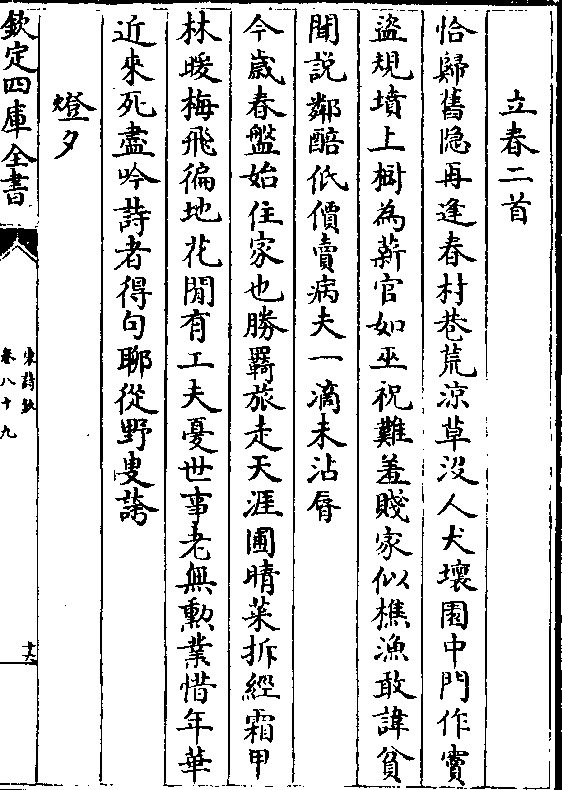 立春二首
恰歸舊隐再逢春村巷荒涼草没人犬壞園中門作竇
盜規墳上樹為薪官如巫祝難羞賤家似樵漁敢諱貧
聞説鄰醅低價賣病夫一滴未沾唇
今歲春盤始住家也勝羇旅走天涯圃晴菜拆經霜甲
林暖梅飛徧地花閒有工夫憂世事老無勲業惜年華
近來死盡吟詩者得句聊從野叟誇
燈夕
欽定四庫全書
宋詩鈔
卷八十九
十六